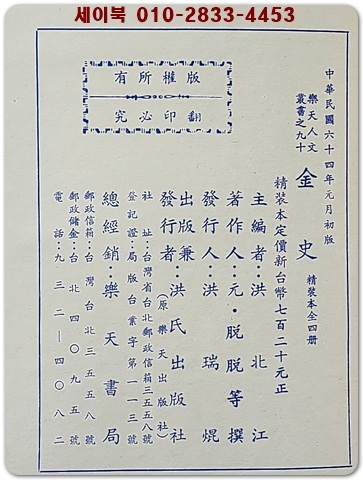 세이북 010-2833-4453
版權所有
翻印必究
中華民國六十四年元月初版
樂天人文
叢書之九十
金史
精裝本全四册
精裝本定價新台幣七百二十元正
主編者：洪北江
著作人：元・脱脱等撰
發行人：洪瑞焜
出版兼
發行者：洪氏出版社
（原樂天出版社）
社址：台灣省台北郵政信箱三五五八號
登記證：局版台業字第一一三號
總經銷：樂天書局
郵政信箱：台灣台北三五五八號
郵政儲金：台北四〇九五號
電話：九三二一四〇八二